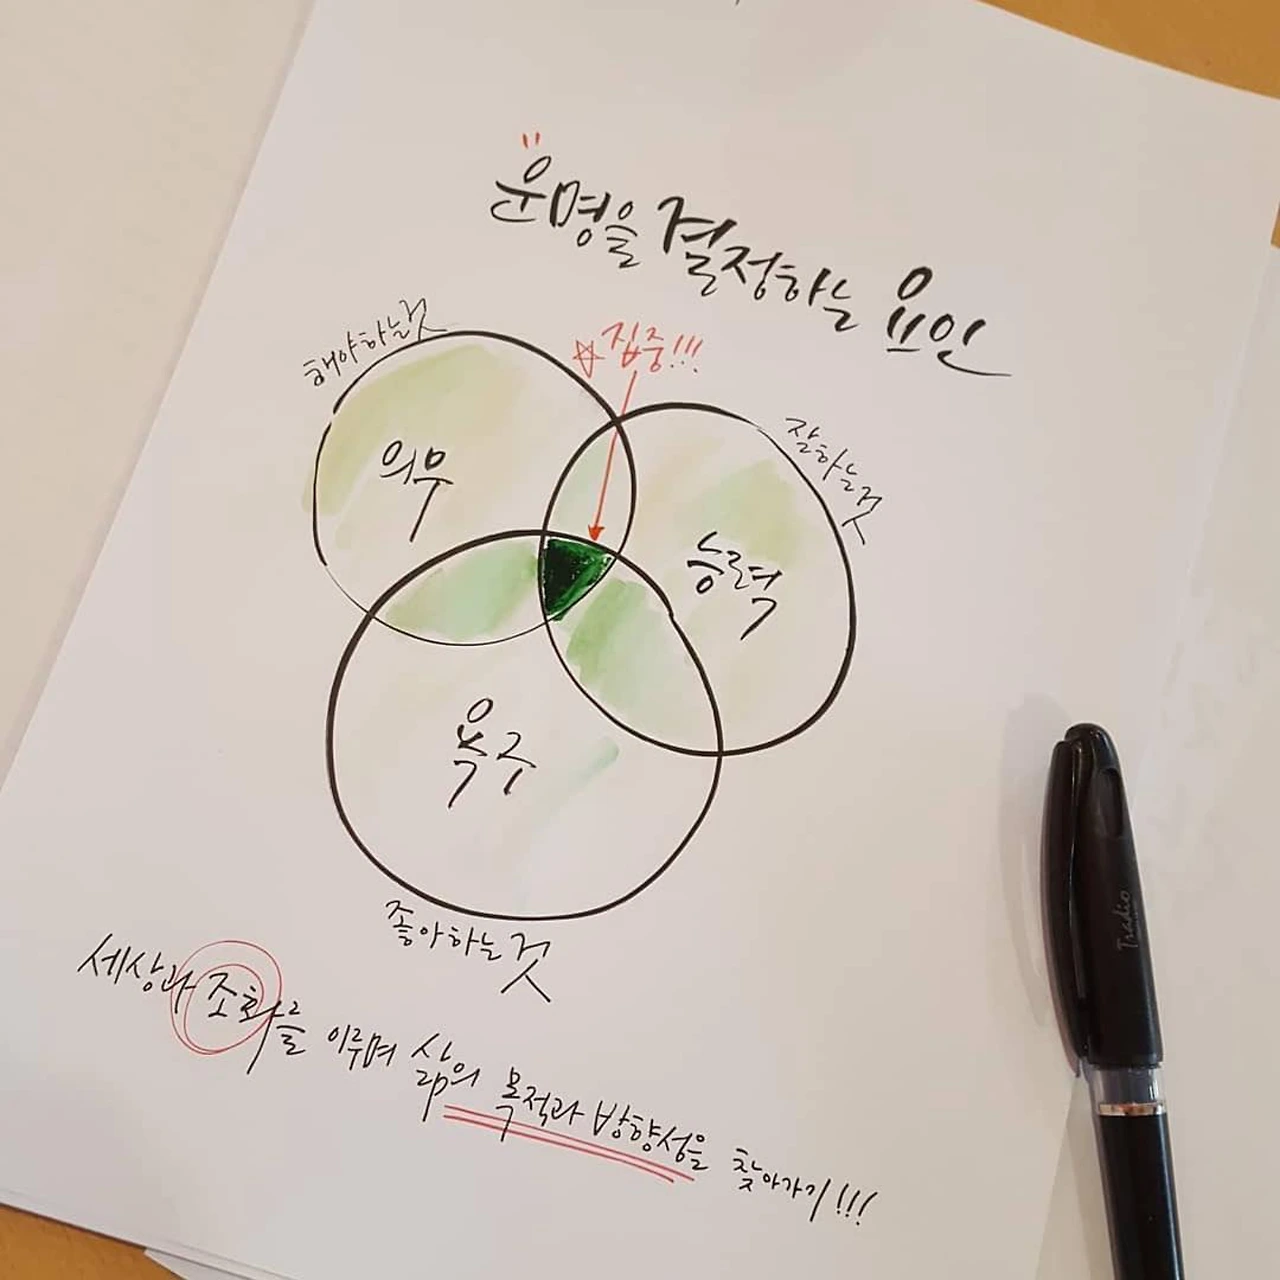 운명을 결정하는 요인
해야하는것
☆집중!!!
잘하는것
의무
능력
욕구
좋아하는것
세상과 조화를 이루며 삶의 목적과 방향성을 찾아가기!!!
Tradio